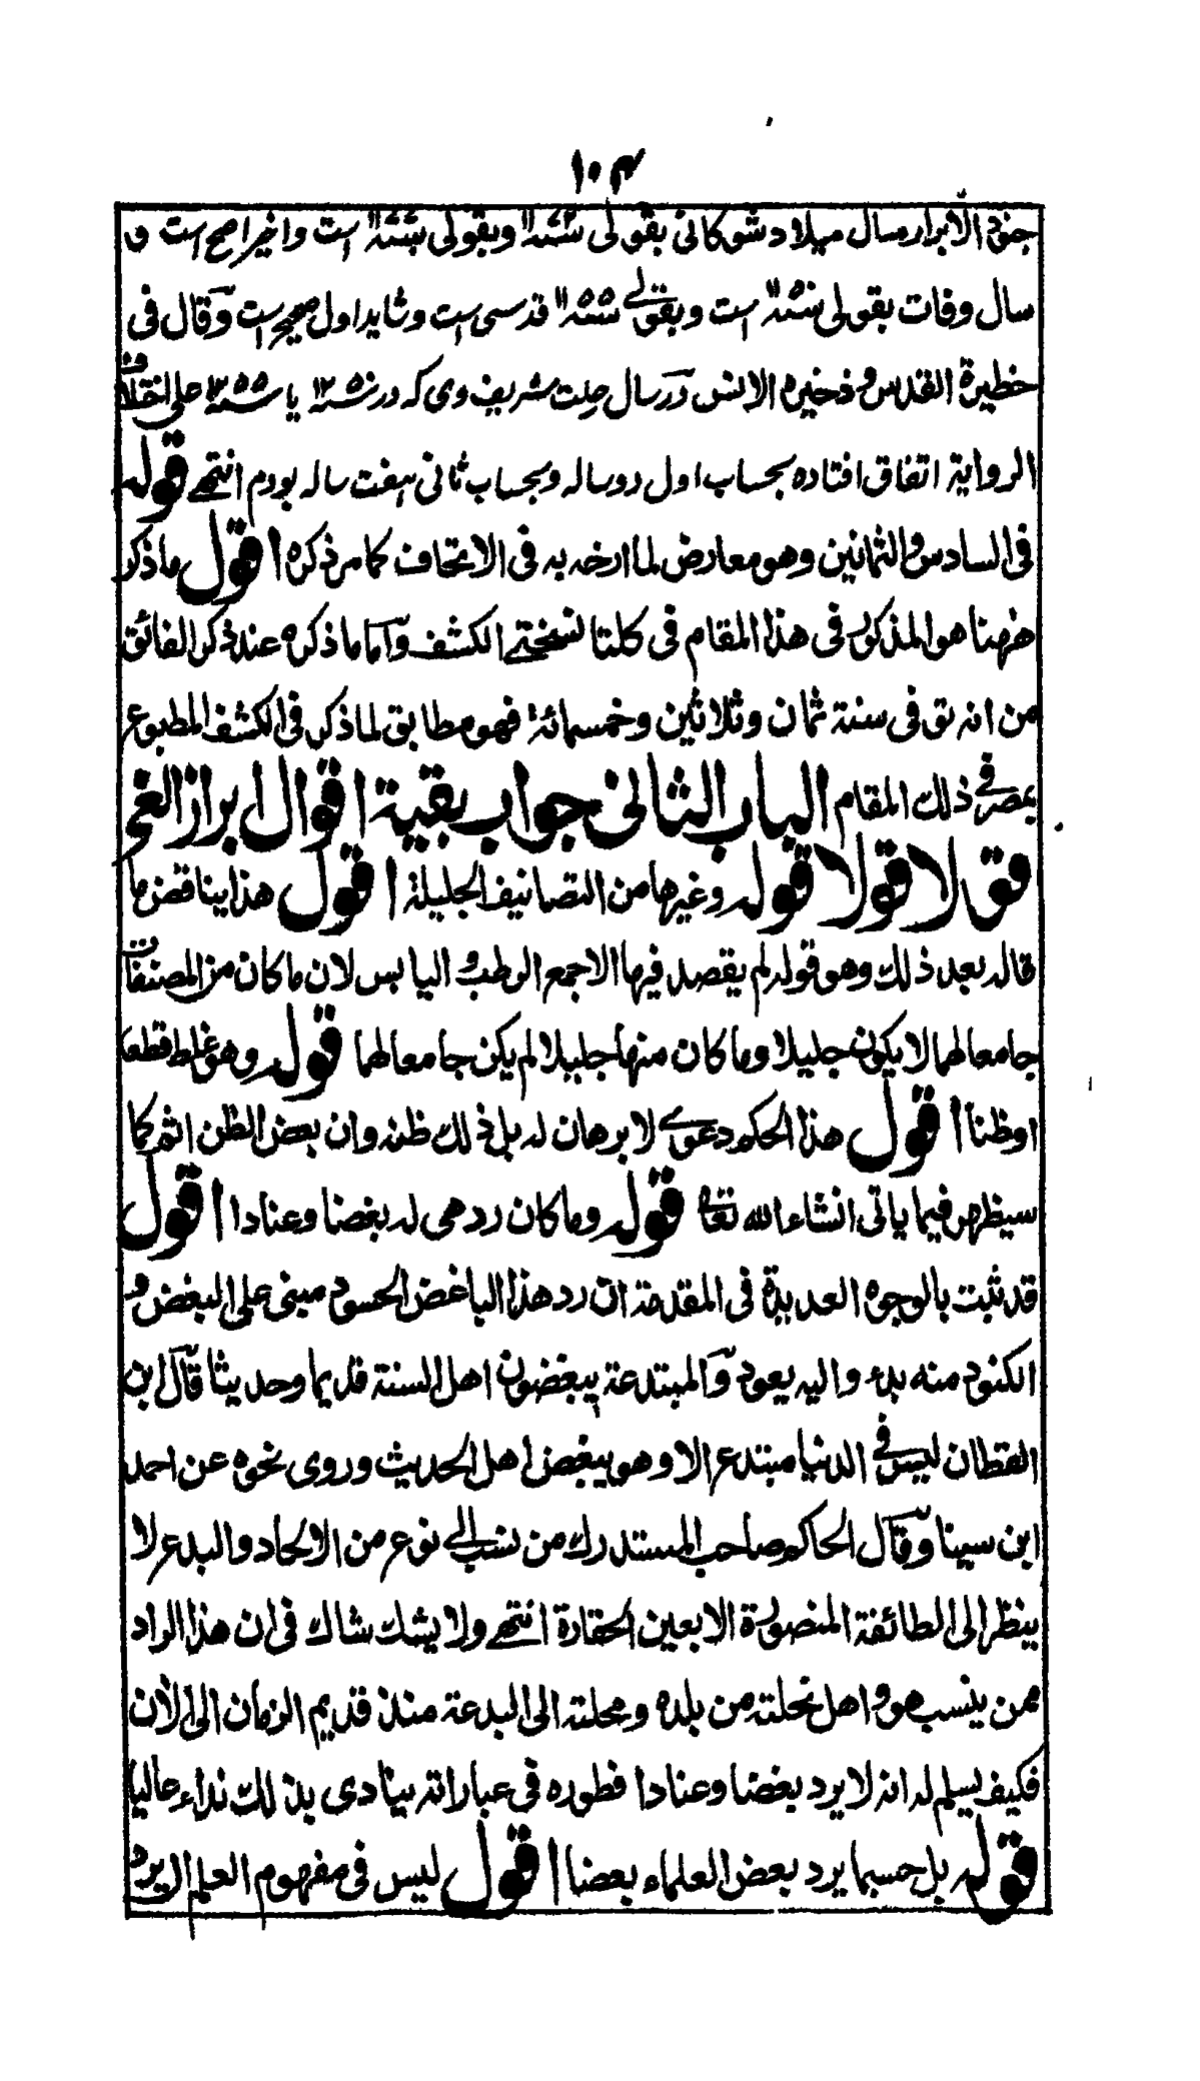 ١٠٤
جنود الابرار سال میلاد شوکانی بقولی است وبقولی است واخیر اصح است و
سال وفات بقولی است وبقولے قدسی است وشاید اول صحیح است وقال فی
خطیرة القدس وذخیره الانس ودر سال حلت شریف وی که در ١٢٥٠ یا ١٢٥٥ علی اختلاف
الروایة اتفاق افتاده بحساب اول دو ساله وبحساب ثانی هفت ساله بودم انتهے قوله
فی السادس والثمانین وهو معارض لما ارخه به فی الاتحاف کما مر ذکره اقول ما ذکر
هٰهنا هو المذکور فی هذا المقام فی کلتا نسختے الکشف واما ما ذکره عند ذکر الفائق
من انه توفی سنة ثمان وثلاثین وخمسمائة فهو مطابق لما ذکر فی الکشف المطبوع
بمصر فے ذلك المقام الباب الثانی جواب بقیة اقوال ابراز الغی
فق لا قولا قوله وغیرها من التصانیف الجلیلة اقول هذا یناقض ما
قاله بعد ذلك وهو قوله لم یقصد فیها الا جمع الرطب و الیابس لان ما کان من المصنفات
جامعا لهما لا یکون جلیلا وما کان منها جلیلا لم یکن جامعا لهما قوله وهو غلط قطعا
اوظنا اقول هذا الحکم دعوے لا برهان له بل ذلك ظنه وان بعض الظن اثم کما
سیظهر فیما یاتی انشاء الله تعالے قوله وما کان ردهی له بغضا وعنادا اقول
قد ثبت بالوجوه العدیدة فی المقدمة ان رد هذا الباغض الحسود مبنی علی البغض و
الکنود منه بدء والیه یعود والمبتدعة یبغضون اهل السنة قدیما وحدیثا قال ابن
القطان لیس فے الدنیا مبتدع الا وهو یبغض اهل الحدیث وروی نحوه عن احمد
ابن سینا وقال الحاکم صاحب المستدرك من نسب الے نوع من الالحاد والبدع لا
ینظر الی الطائفة المنصورة الا بعین الحقارة انتهے ولا یشك شاك فی ان هذا الراد
ممن ینسب هو و اهل نحلته من بلده ومحلته الی البدعة منذ قدیم الزمان الی الاٰن
فکیف یسلم له انه لا یرد بغضا وعنادا فطوره فی عباراته ینادی بذلك نداء عالیا
قوله بل حسبما یرد بعض العلماء بعضا اقول لیس فی مفهوم العلم الا یرد